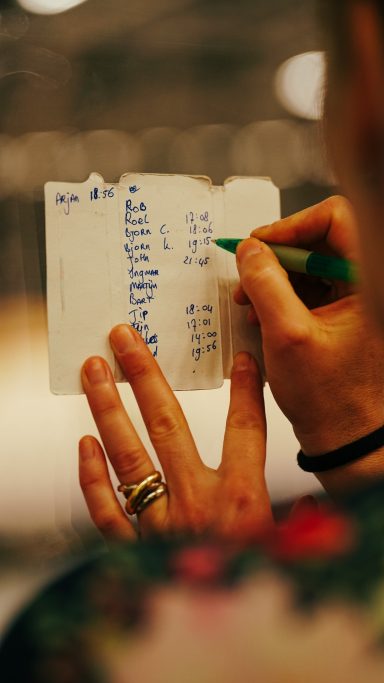 Arjan 18:56
Rob
Roel 17:08
Bjorn C. 18:06
Bjorn k. 19:15
John 21:45
Ingmar
Martijn
Bart
Jip 18:04
17:01
14:00
19:56